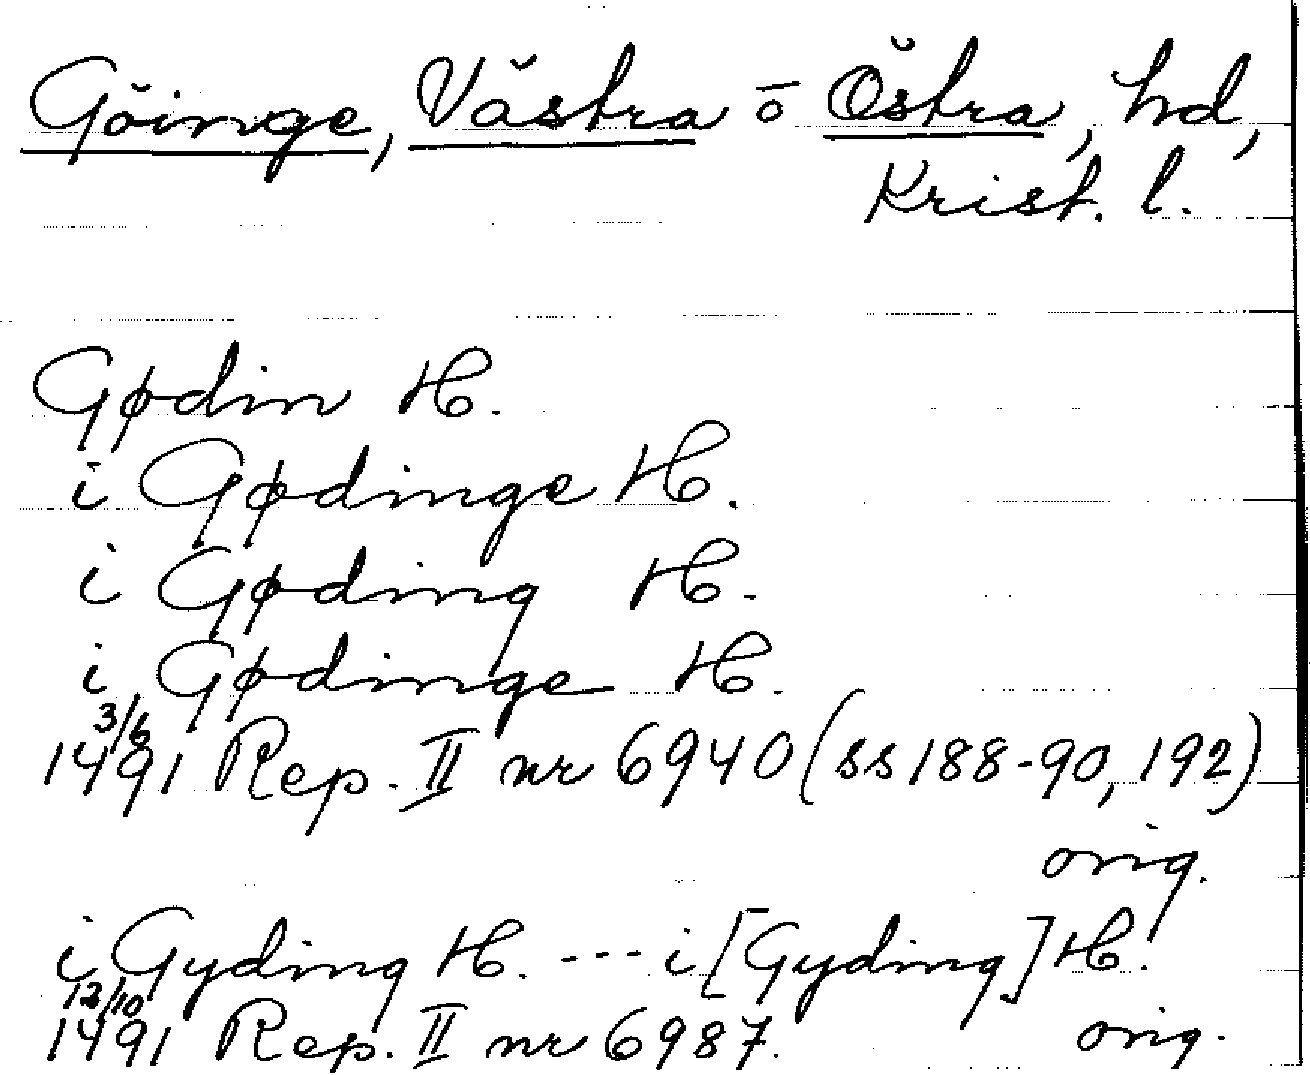 Göinge, Västra o Östra, hd,
Krist. l.
Gødin H.
i Gødinge H.
i Gøding H.
i Gødinge H.
3/6
1491 Rep. II nr 6940 (ss 188-90, 192)
orig.
i Gyding H. --- i [Gyding] H.
12/10
1491 Rep. II nr 6987. orig.